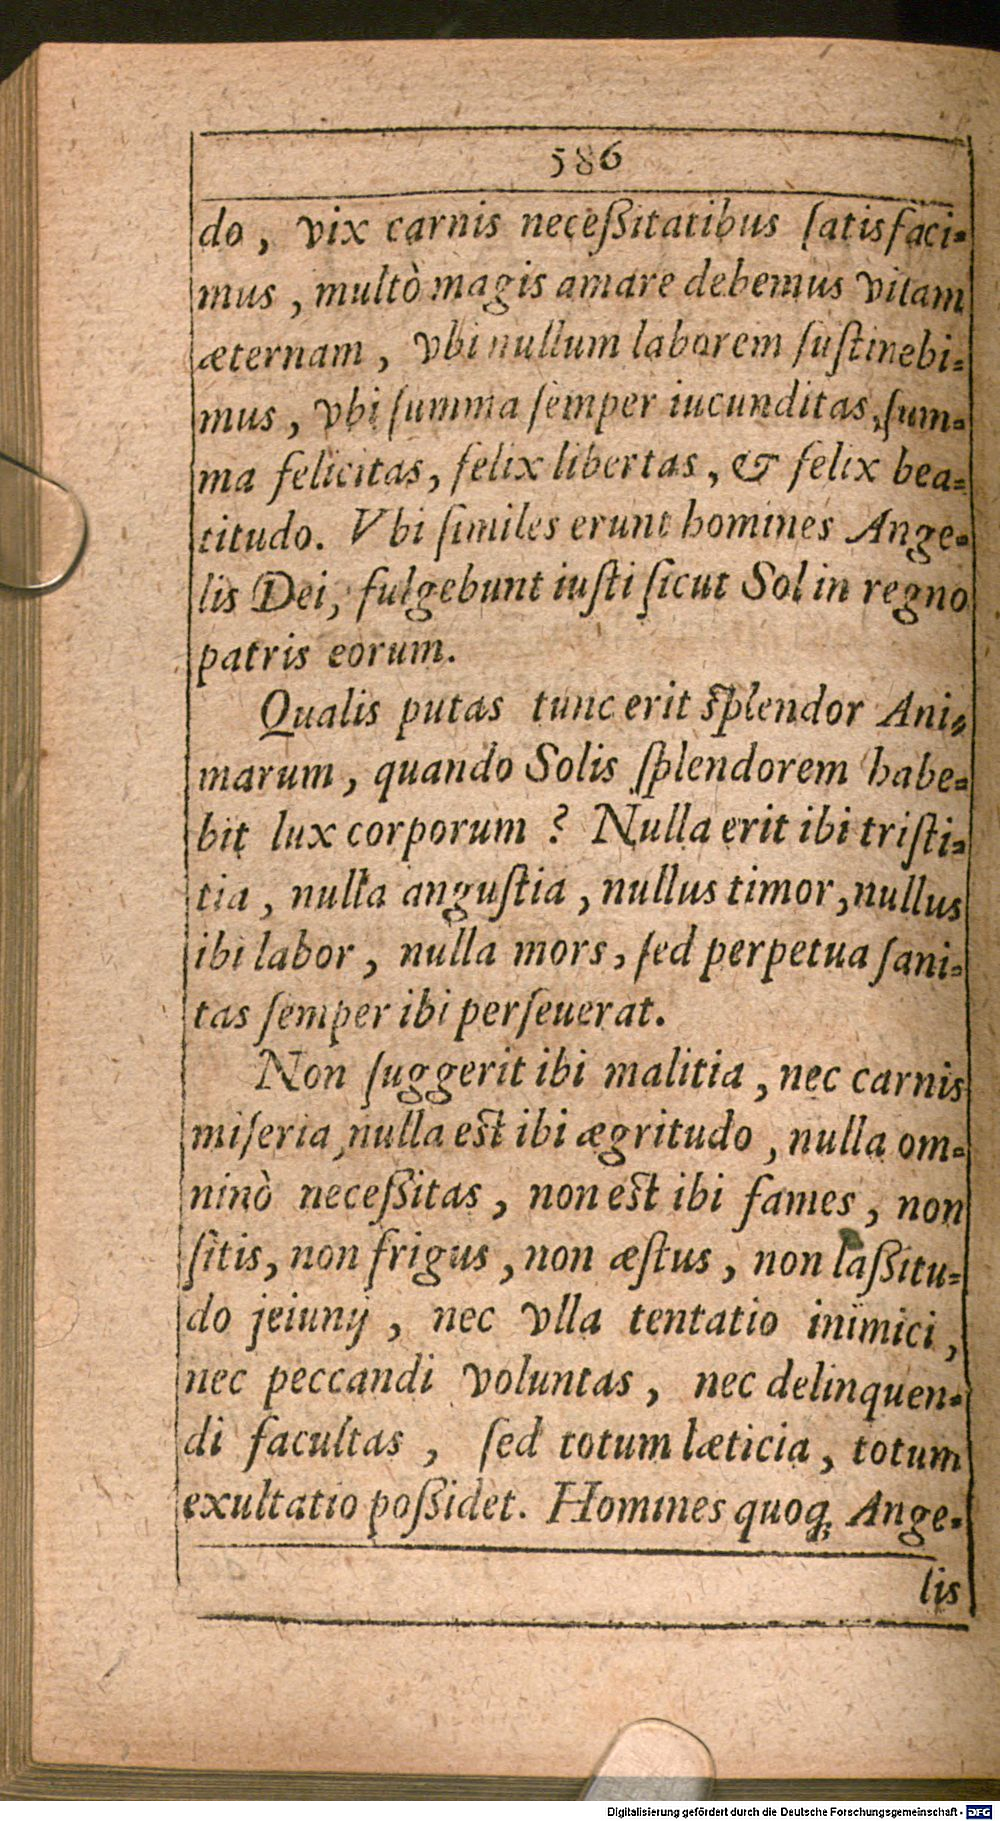 586
do, vix carnis neceßitatibus ſatisfaci-
mus, multò magis amare debemus vitam
æternam, vbi nullum laborem ſuſtinebi-
mus, vbi ſumma ſemper iucunditas, ſum-
ma felicitas, felix libertas, & felix bea-
titudo. Vbi ſimiles erunt homines Ange-
lis Dei, fulgebunt iuſti ſicut Sol in regno
patris eorum.
Qualis putas tunc erit ſplendor Ani-
marum, quando Solis ſplendorem habe-
bit lux corporum? Nulla erit ibi triſti-
tia, nulla anguſtia, nullus timor, nullus
ibi labor, nulla mors, ſed perpetua ſani-
tas ſemper ibi perſeuerat.
Non ſuggerit ibi malitia, nec carnis
miſeria, nulla eſt ibi ægritudo, nulla om-
ninò neceßitas, non eſt ibi fames, non
ſitis, non frigus, non æſtus, non laßitu-
do jeiunij, nec vlla tentatio inimici,
nec peccandi voluntas, nec delinquen-
di facultas, ſed totum læticia, totum
exultatio poßidet. Homines quoq; Ange-
lis
Digitalisierung gefördert durch die Deutsche Forschungsgemeinschaft - DFG